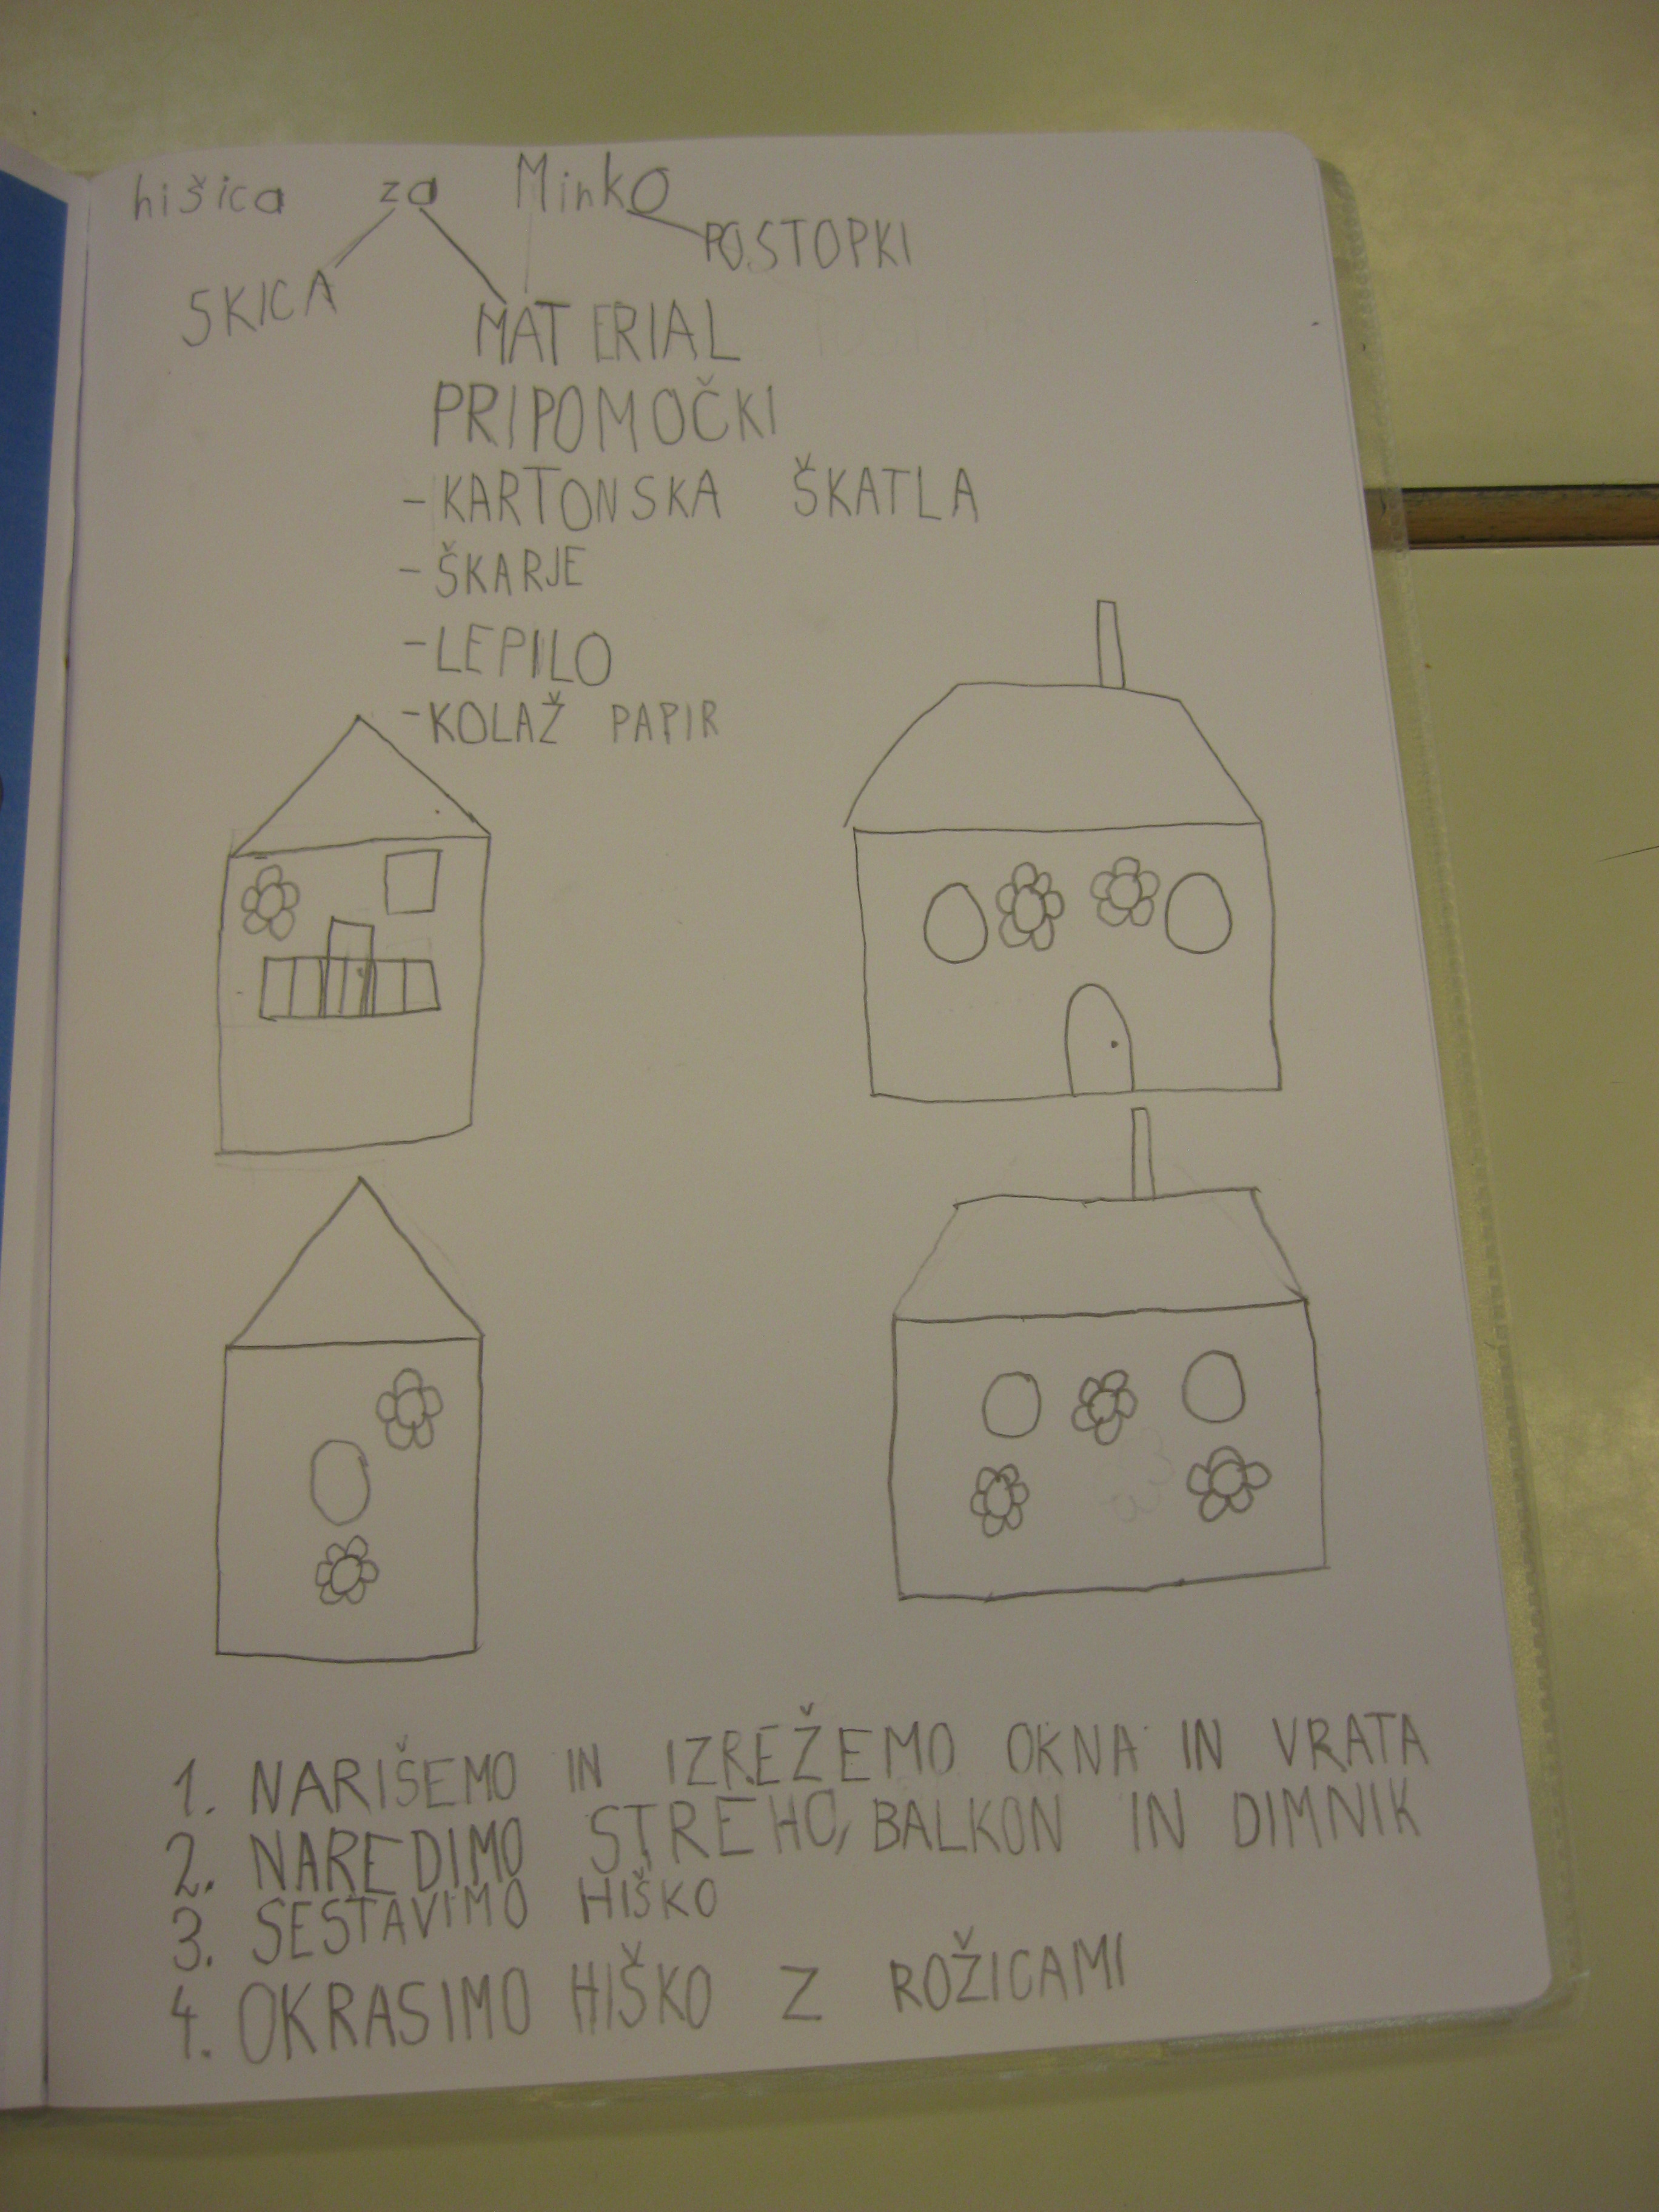 hišica za Minko
POSTOPKI
SKICA
MATERIAL
PRIPOMOČKI
- KARTONSKA ŠKATLA
- ŠKARJE
- LEPILO
- KOLAŽ PAPIR
1. NARIŠEMO IN IZREŽEMO OKNA IN VRATA
2. NAREDIMO STREHO, BALKON IN DIMNIK
3. SESTAVIMO HIŠKO
4. OKRASIMO HIŠKO Z ROŽICAMI